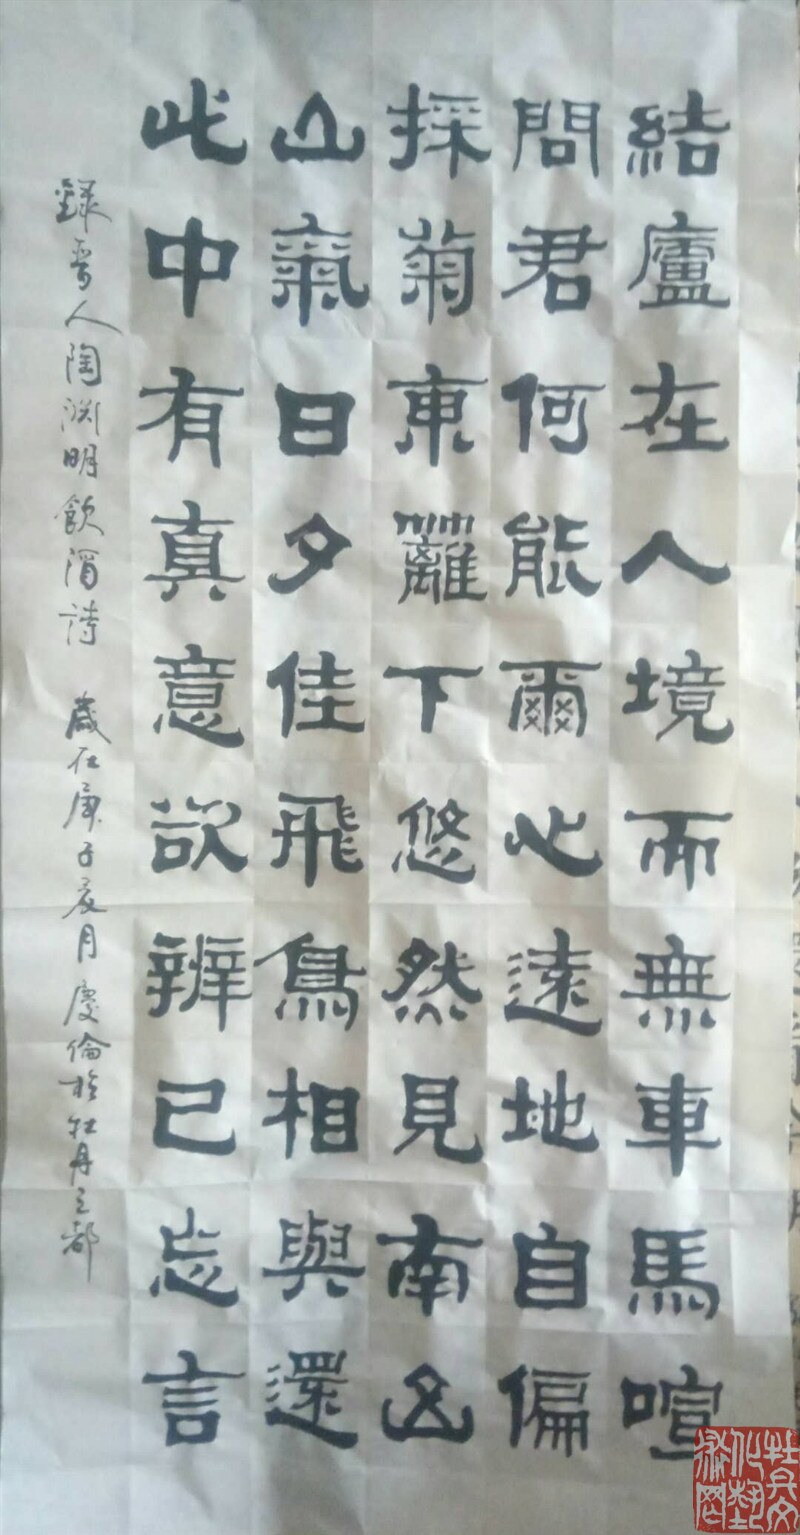 結廬在人境而無車馬喧
問君何能爾心遠地自偏
採菊東籬下悠然見南山
山氣日夕佳飛鳥相與還
此中有真意欲辨已忘言
錄晋人陶渊明飲酒詩 歲在庚子辰月慶倫於牡丹之都
牡丹文化藝術网